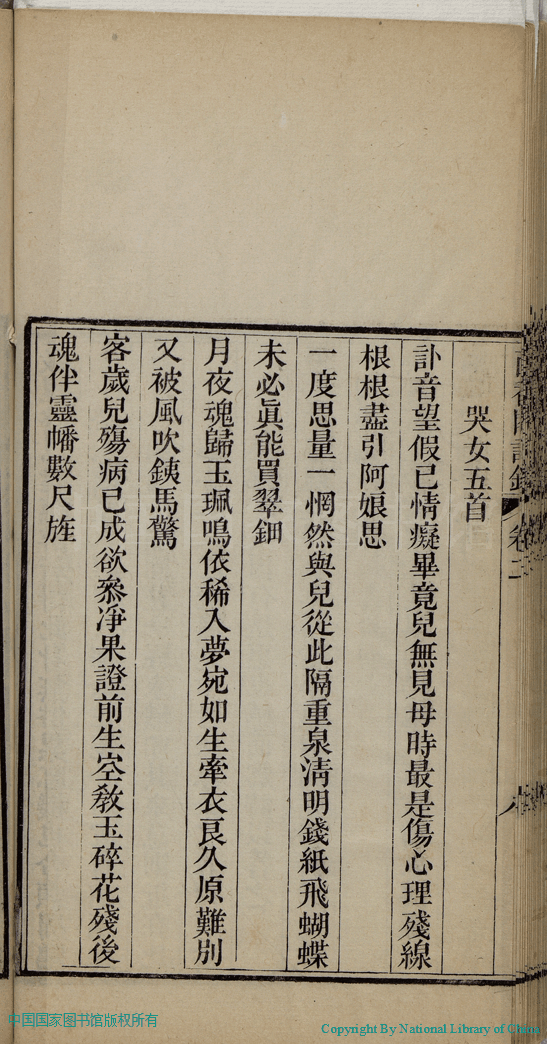 哭女五首
訃音望假已情癡畢竟兒無見母時最是傷心理殘線
根根盡引阿娘思
一度思量一惘然與兒從此隔重泉淸明錢紙飛蝴蝶
未必眞能買翠鈿
月夜魂歸玉珮鳴依稀入夢宛如生牽衣良久原難別
又被風吹鐵馬驚
客歲兒殤病已成欲叅凈果證前生空敎玉碎花殘後
魂伴靈幡數尺旌
卷二
中国国家图书馆版权所有
Copyright By National Library of China